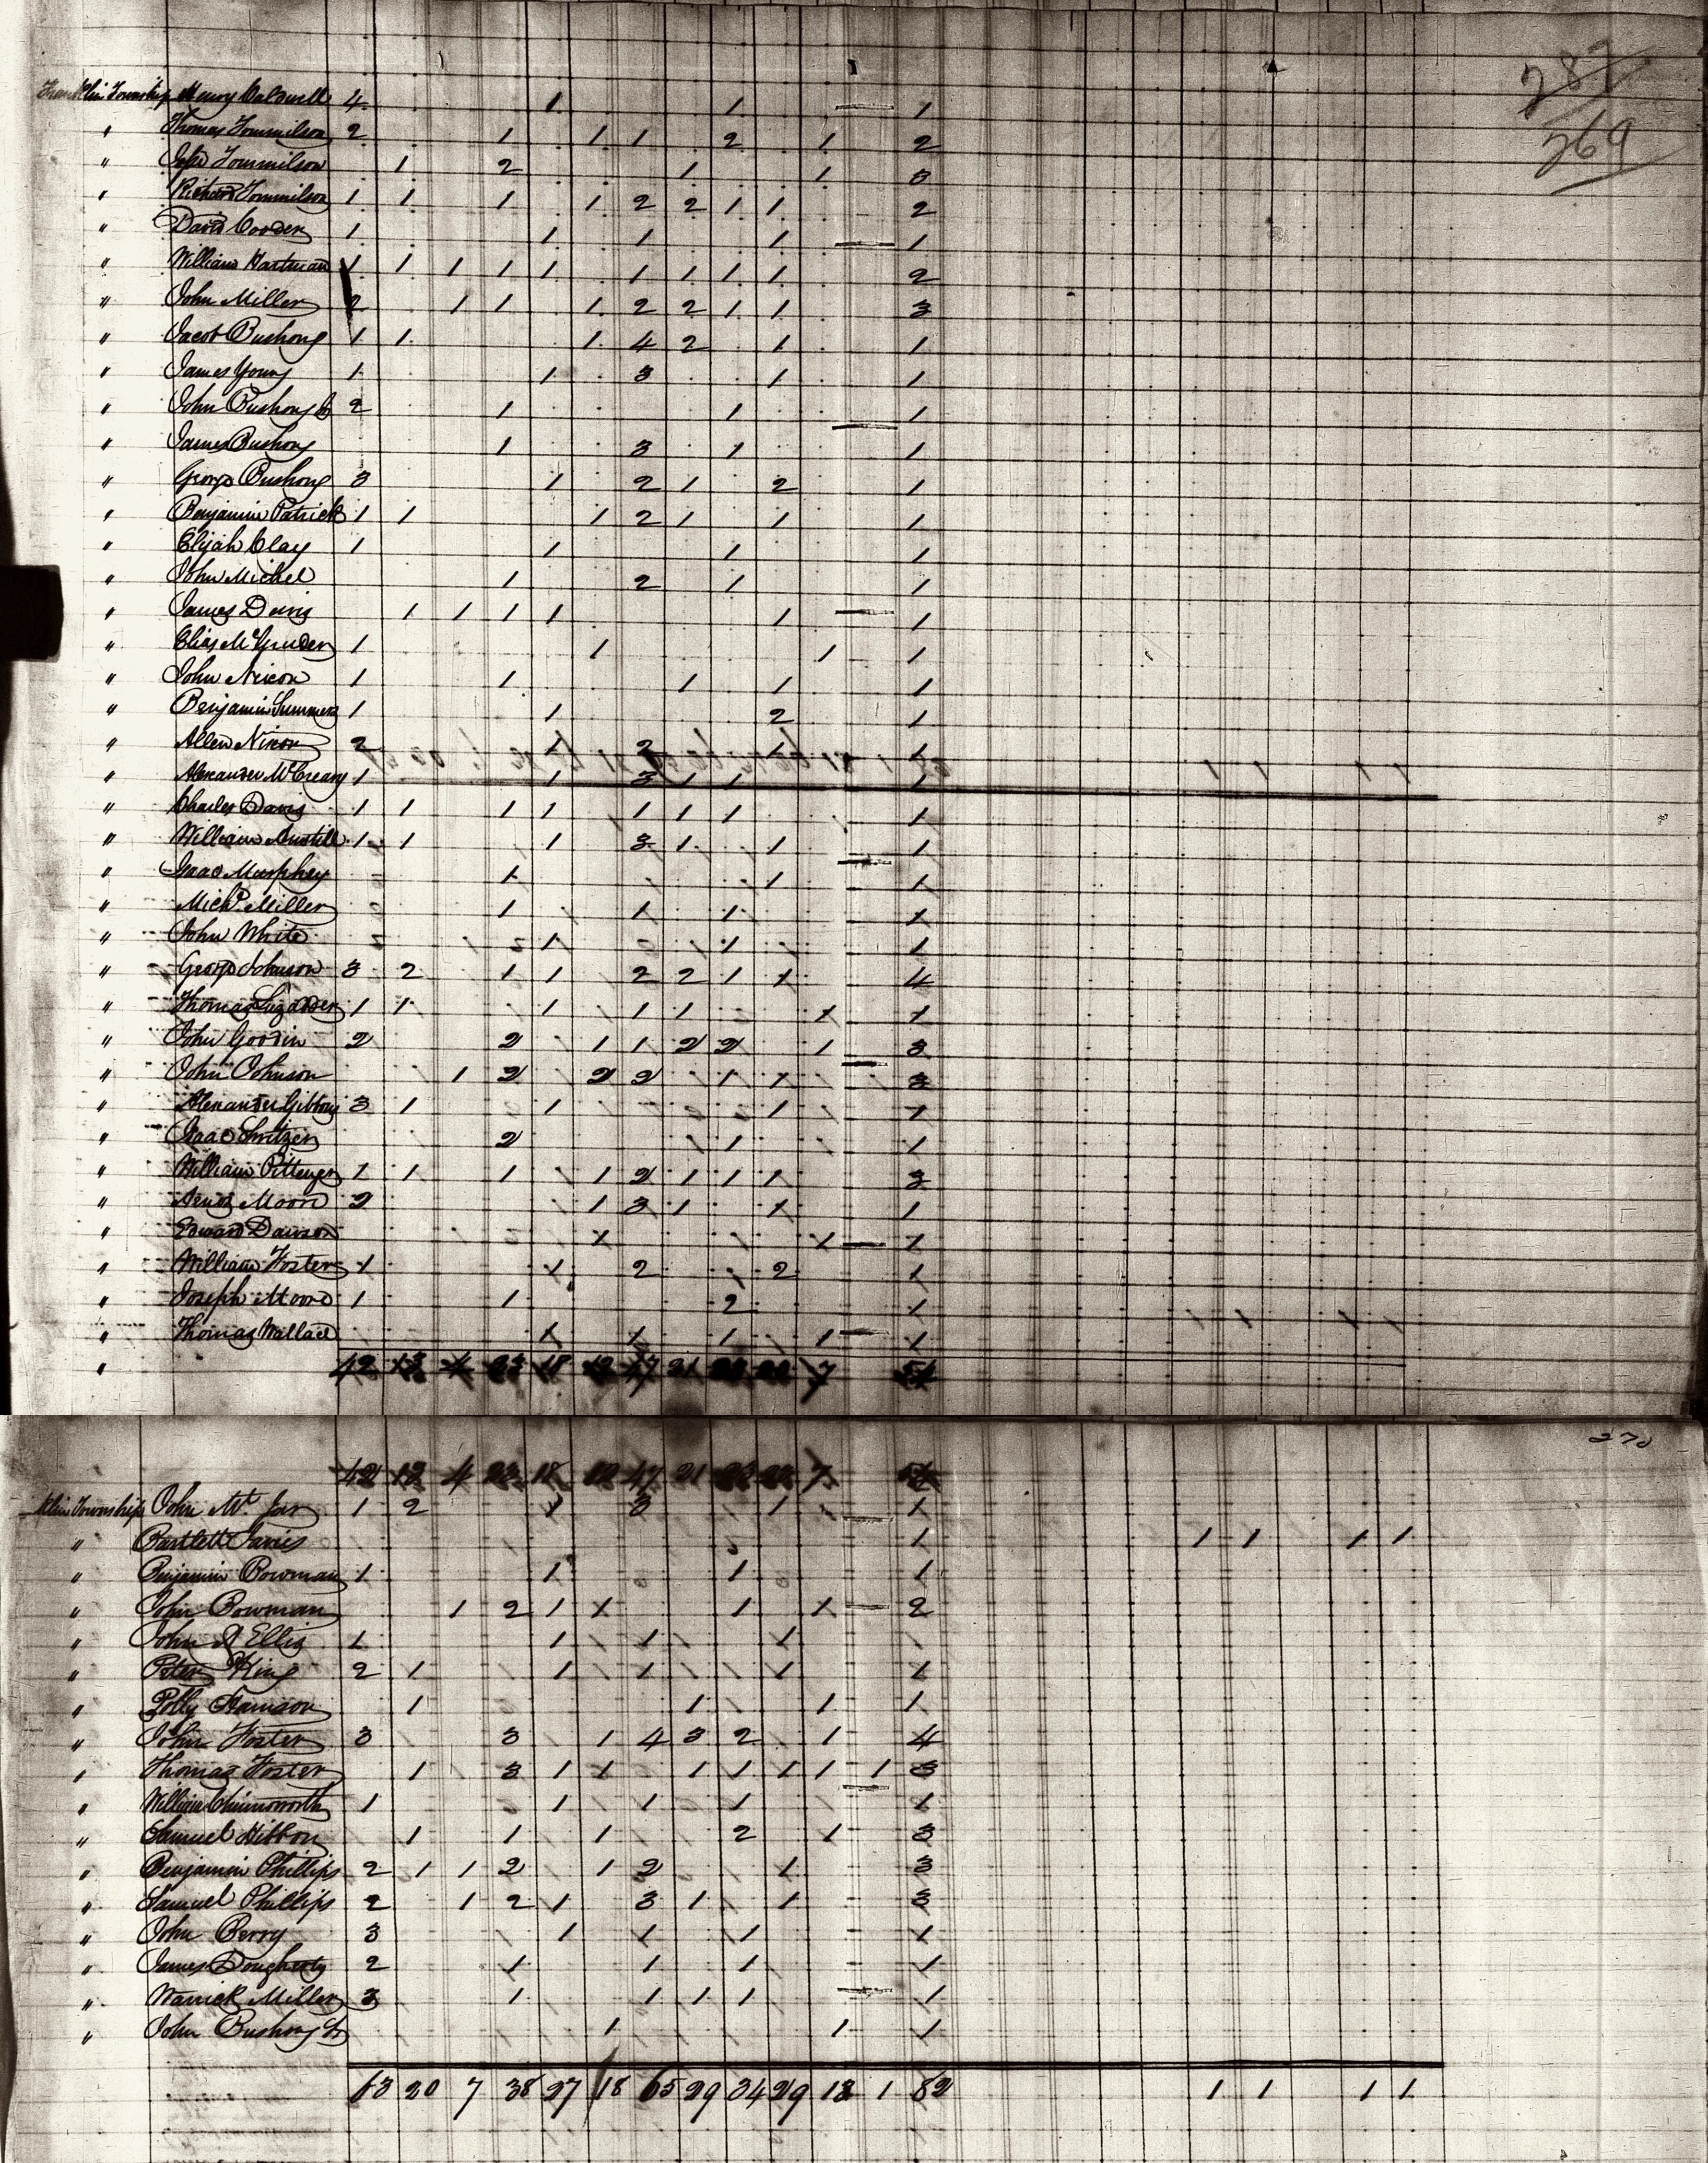 287
269
Franklin Township Henry Caldwell 4 1 1 1
" Thomas Tommilson 2 1 1 1 2 1 2
" John Tommilson 1 2 1 1 3
" Richard Tommilson 1 1 1 1 2 2 1 1 2
" David 1 1 1 1 1
" William Hartman 1 1 1 1 1 1 1 1 1 2
" John Miller 2 1 1 1 2 2 1 1 3
" Jacob Bushong 1 1 1 4 2 1 1
" James Young 1 1 3 1 1
" John Bushong 2 1 1 1
" James Bushong 1 3 1 1
" George Bushong 3 1 2 1 2 1
" Benjamin Patrick 1 1 1 2 1 1 1
" Elijah Clay 1 1 1 1
" John Michel 1 2 1 1
" James Davis 1 1 1 1 1 1
" Elias 1 1 1 1
" John Nixon 1 1 1 1 1
" Benjamin Summers 1 1 2 1
" Allen Nixon 2 1 2 1 1
" Alexander McCreary 1 1 3 1 1 1
" Charles Davis 1 1 1 1 1 1 1 1
" William Austill 1 1 1 3 1 1 1
" Isaac Murphey 1 1 1
" Michl. Miller 1 1 1 1
" John White 1 1 1
" George Johnson 3 2 1 1 2 2 1 1 4
" Thomas 1 1 1 1 1 1 1
" John Goodin 2 2 1 1 2 2 1 3
" John Johnson 1 2 2 2 1 1 3
" Alexander Gibbons 3 1 1 1 1
" Isaac 2 1 1
" William Pittenger 1 1 1 1 2 1 1 1 3
" Moore 2 1 3 1 1 1
" Edward Dawson 1 1 1
" William Foster 1 1 2 2 1
" Joseph Moore 1 1 2 1
" Thomas Wallace 1 1 1 1 1
" 42 13 4 23 18 12 47 21 7 54
270
42 13 4 23 18 12 47 21 7 54
klin Township John 1 2 1 3 1 1
" Bartlett 1 1 1 1 1
" Benjamin Bowman 1 1 1 1
" John Bowman 1 2 1 1 1 1 2
" John Ellis 1 1 1 1 1
" Peter King 2 1 1 1 1 1
" Polly 1 1 1 1
" John Foster 3 3 1 4 3 2 1 4
" Thomas Foster 1 3 1 1 1 1 1 1 1 3
" William Chinnoworth 1 1 1 1 1
" Samuel 1 1 1 2 1 3
" Benjamin Phillips 2 1 1 2 1 2 1 3
" Samuel Phillips 2 1 2 1 3 1 1 3
" John Berry 3 1 1 1 1
" James Dougherty 2 1 1 1 1
" Warrick Miller 3 1 1 1 1 1
" John Bushong 1 1 1
63 20 7 38 27 18 65 29 34 29 12 1 82 1 1 1 1